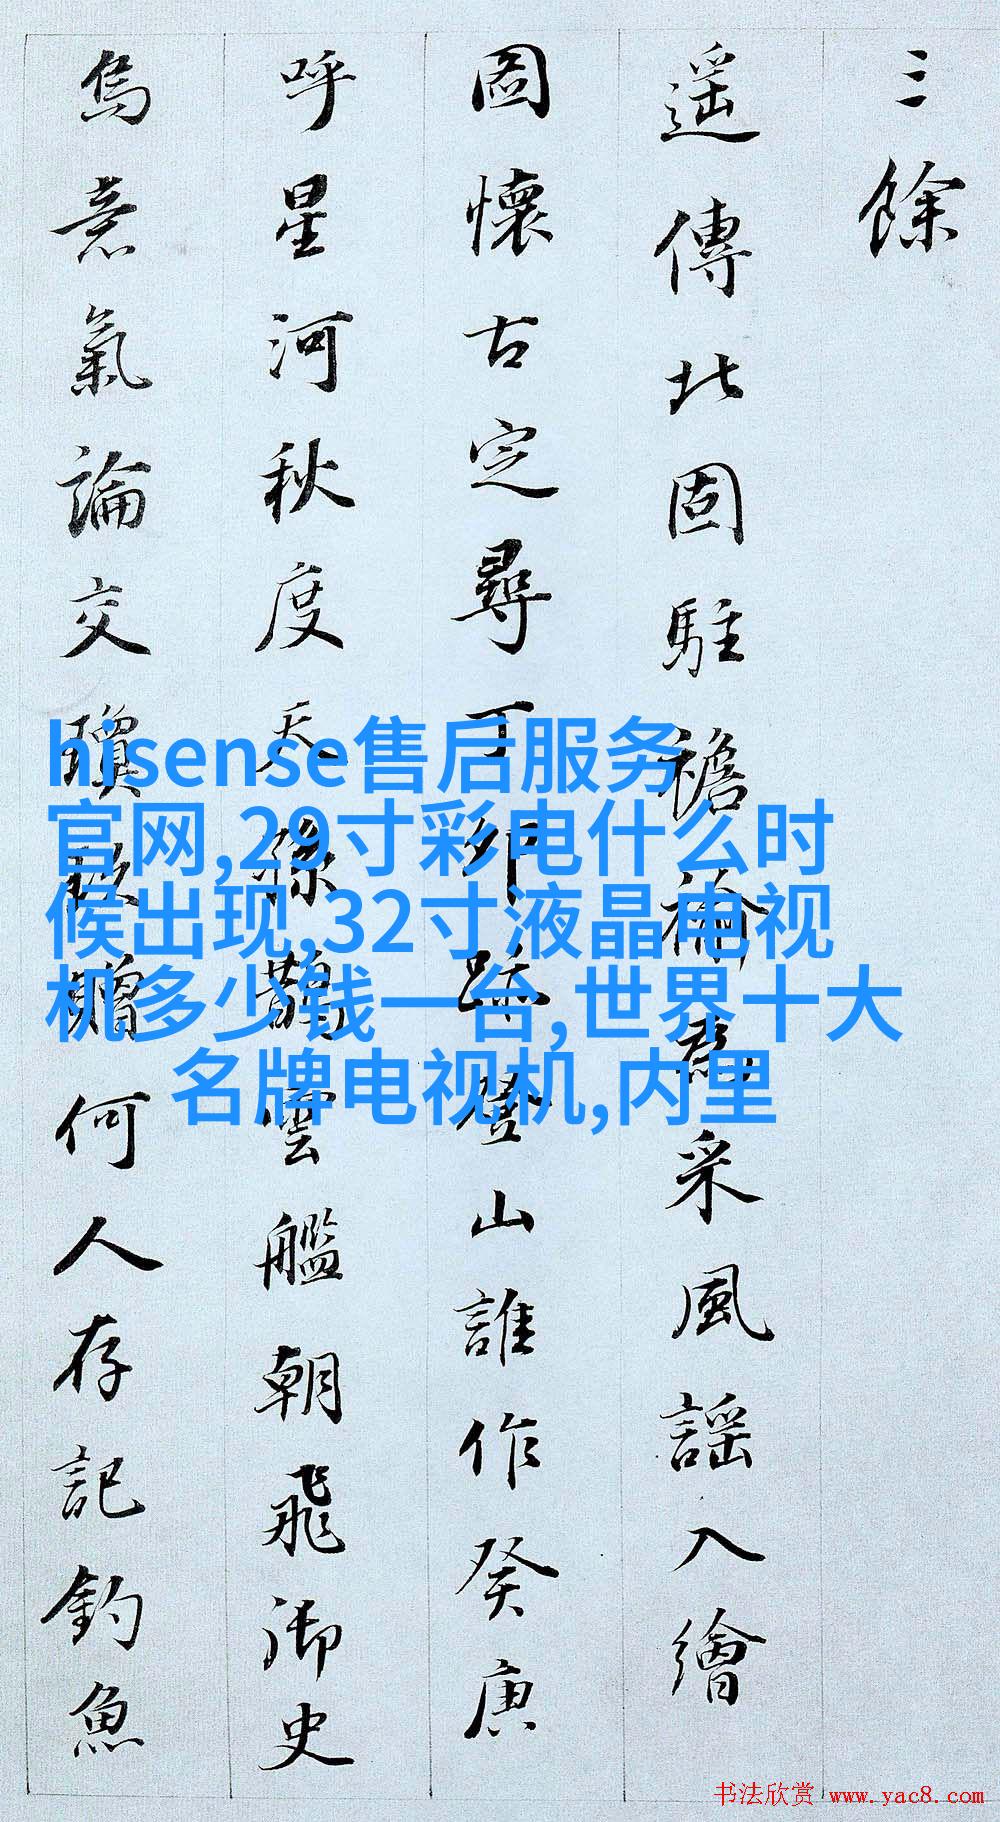 三餘
遥傳北固駐襜襜爲采風謡入繪
圖懷古定尋丁卯跡登山誰作癸庚
呼星河秋度天孫鵲雲艦朝飛御史
烏意氣論交蹟敢贈何人存記釣魚
hisense售后服务
官网,29寸彩电什么时
候出现,32寸液晶电视
机多少钱一台,世界十大
名牌电视机,内里
书法欣赏 www.yac8.com